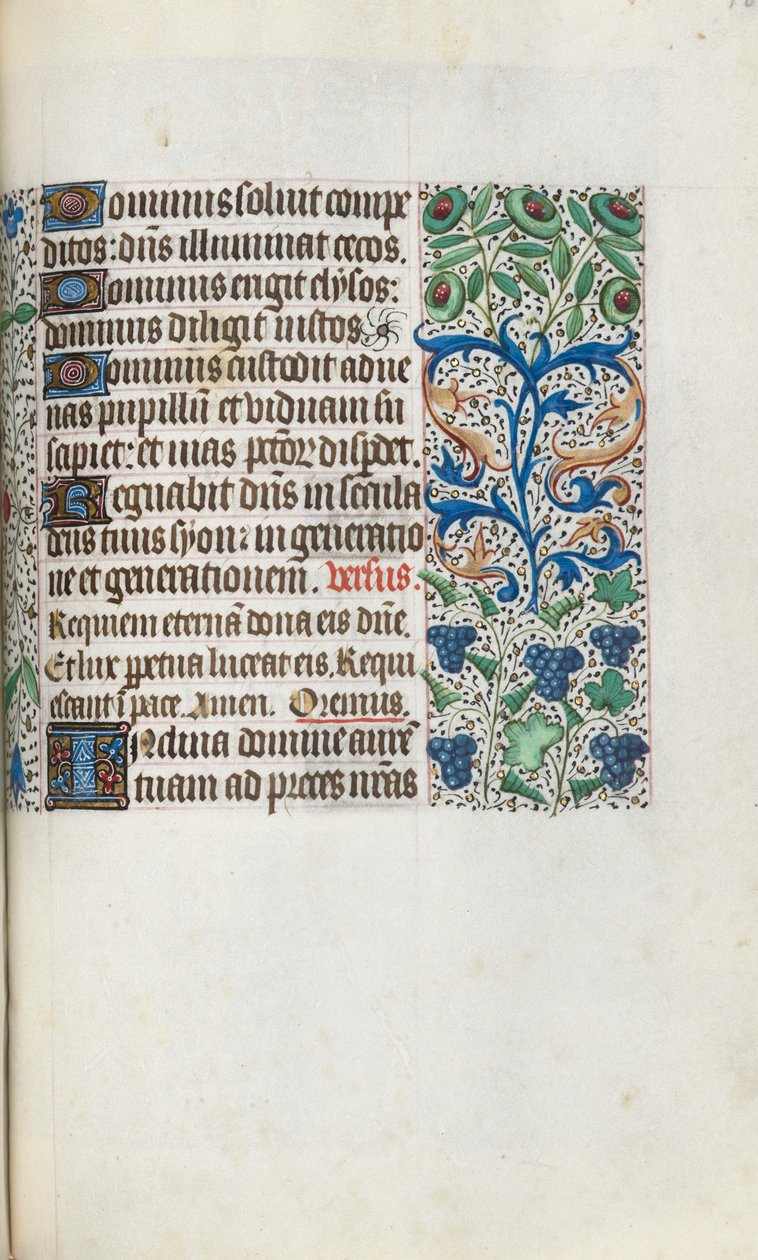 Dominus soluit compe
ditos: dñs illuminat cecos.
Dominus erigit elysos:
dominus diligit iustos
Dominus custodit adue
nas pupillũ et viduam su
scipiet: et uias pctõꝝ disperdet.
Regnabit dñs in secula
deus tuus syon: in generatio
ne et generationem. versus.
Requiem eternã dona eis dñe.
Et lux ꝑpetua luceat eis. Requi
escant ĩ pace. Amen. Oremus.
Inclina domine aurẽ
tuam ad preces nr̃as